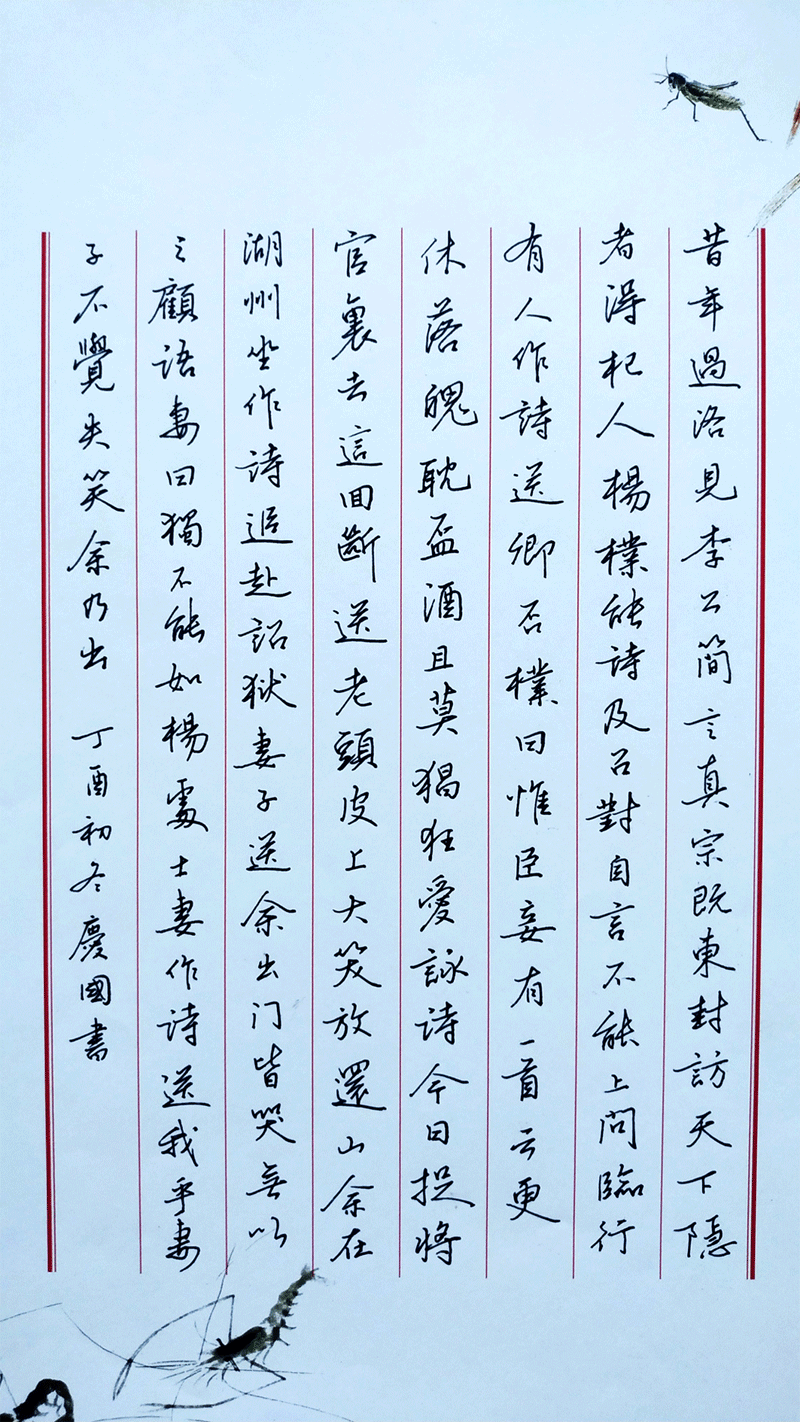 昔年過洛見李公簡言真宗既東封訪天下隱
者得杞人楊樸能詩及召對自言不能上問臨行
有人作詩送卿否樸曰惟臣妾有一首云更
休落魄耽盃酒且莫猖狂愛詠詩今日捉將
官裏去這回斷送老頭皮上大笑放還山余在
湖州坐作詩追赴詔獄妻子送余出门皆哭無以
之顧語妻曰獨不能如楊處士妻作詩送我乎妻
子不覺失笑余乃出 丁酉初冬慶國書